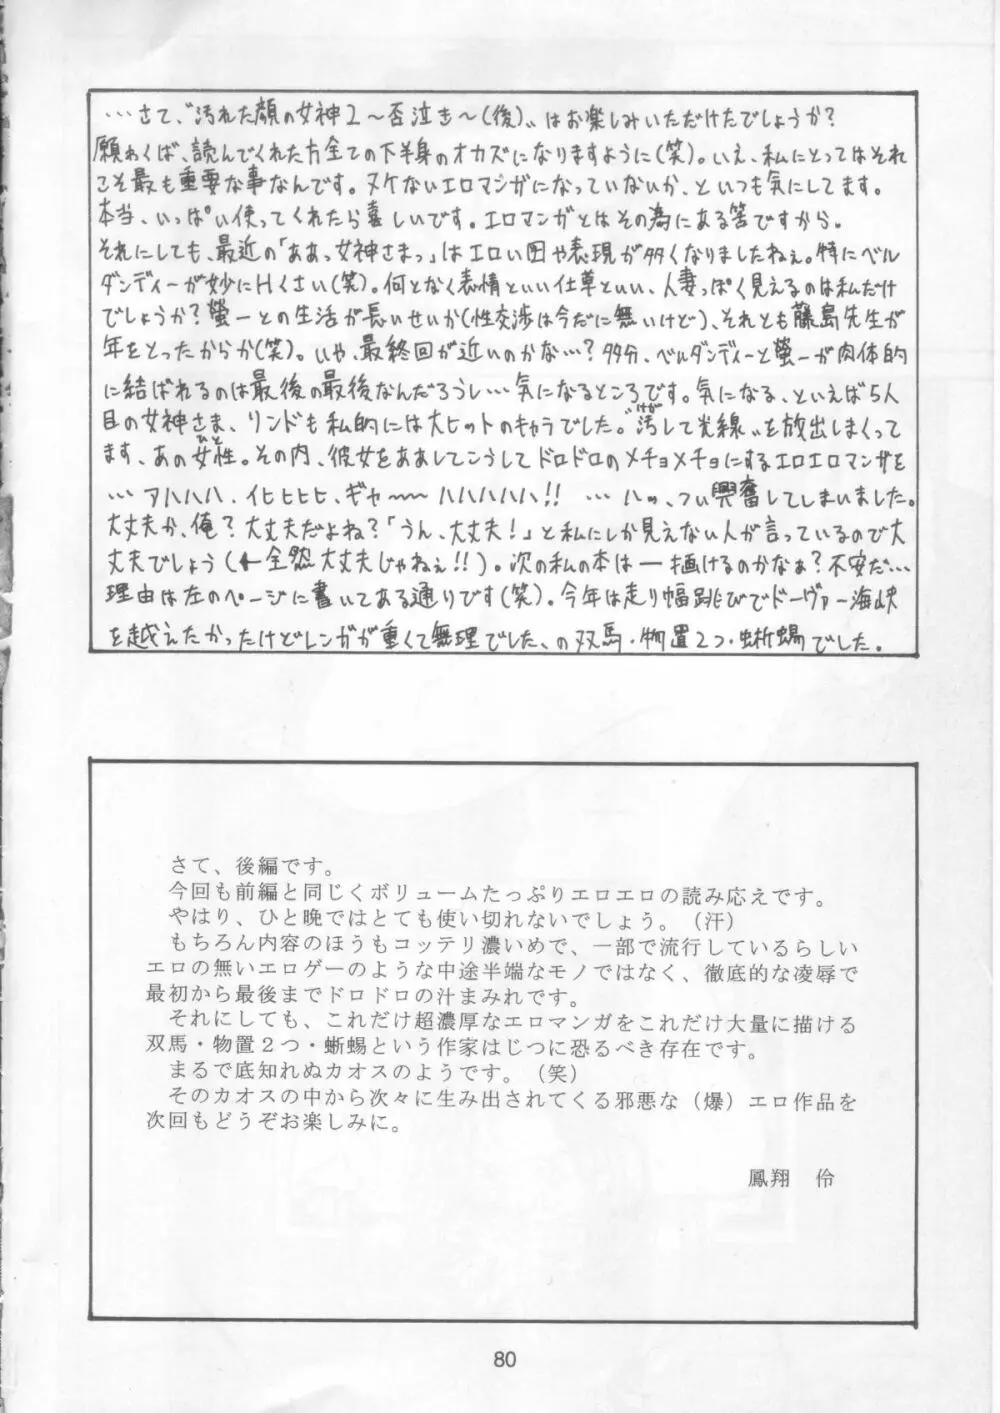 …さて、〝汚れた顔の女神2〜否泣き〜(後)〟はお楽しみいただけたでしょうか?
願わくば、読んでくれた方全ての下半身のオカズになりますように(笑)。いえ、私にとってはそれ
こそ最も重要な事なんです。ヌケないエロマンガになっていないか、といつも気にしてます。
本当、いっぱい使ってくれたら喜しいです。エロマンガとはその為にある筈ですから。
それにしても、最近の「ああっ女神さまっ」はエロい図や表現が多くなりましたねぇ。特にベル
ダンディーが妙にHくさい(笑)。何となく表情といい仕草といい、人妻っぽく見えるのは私だけ
でしょうか?螢一との生活が長いせいか(性交渉は今だに無いけど)、それとも藤島先生が
年をとったからか(笑)。いや、最終回が近いのかな…?多分、ベルダンディーと螢一が肉体的
に結ばれるのは最後の最後なんだろうし…気になるところです。気になる、といえば5人
目の女神さま、リンドも私的には大ヒットのキャラでした。〝汚(けが)して光線〟を放出しまくって
ます、あの女性(ひと)。その内、彼女をああしてこうしてドロドロのメチョメチョにするエロエロマンガを
…アハハハ、イヒヒヒヒ、ギャ〜〜ハハハハハ!! …ハッ、つい興奮してしまいました。
大丈夫か、俺?大丈夫だよね?「うん、大丈夫!」と私にしか見えない人が言っているので大
丈夫でしょう(←全然大丈夫じゃねぇ!!)。次の私の本は一描けるのかなぁ?不安だ…
理由は左のページに書いてある通りです(笑)。今年は走り幅跳びでドーヴァー海峡
を越えたかったけどレンガが重くて無理でした、の双馬・物置2つ・蜥蜴でした。
さて、後編です。
今回も前編と同じくボリュームたっぷりエロエロの読み応えです。
やはり、ひと晩ではとても使い切れないでしょう。(汗)
もちろん内容のほうもコッテリ濃いめで、一部で流行しているらしい
エロの無いエロゲーのような中途半端なモノではなく、徹底的な凌辱で
最初から最後までドロドロの汁まみれです。
それにしても、これだけ超濃厚なエロマンガをこれだけ大量に描ける
双馬・物置２つ・蜥蜴という作家はじつに恐るべき存在です。
まるで底知れぬカオスのようです。(笑)
そのカオスの中から次々に生み出されてくる邪悪な(爆)エロ作品を
次回もどうぞお楽しみに。
鳳翔　伶
80